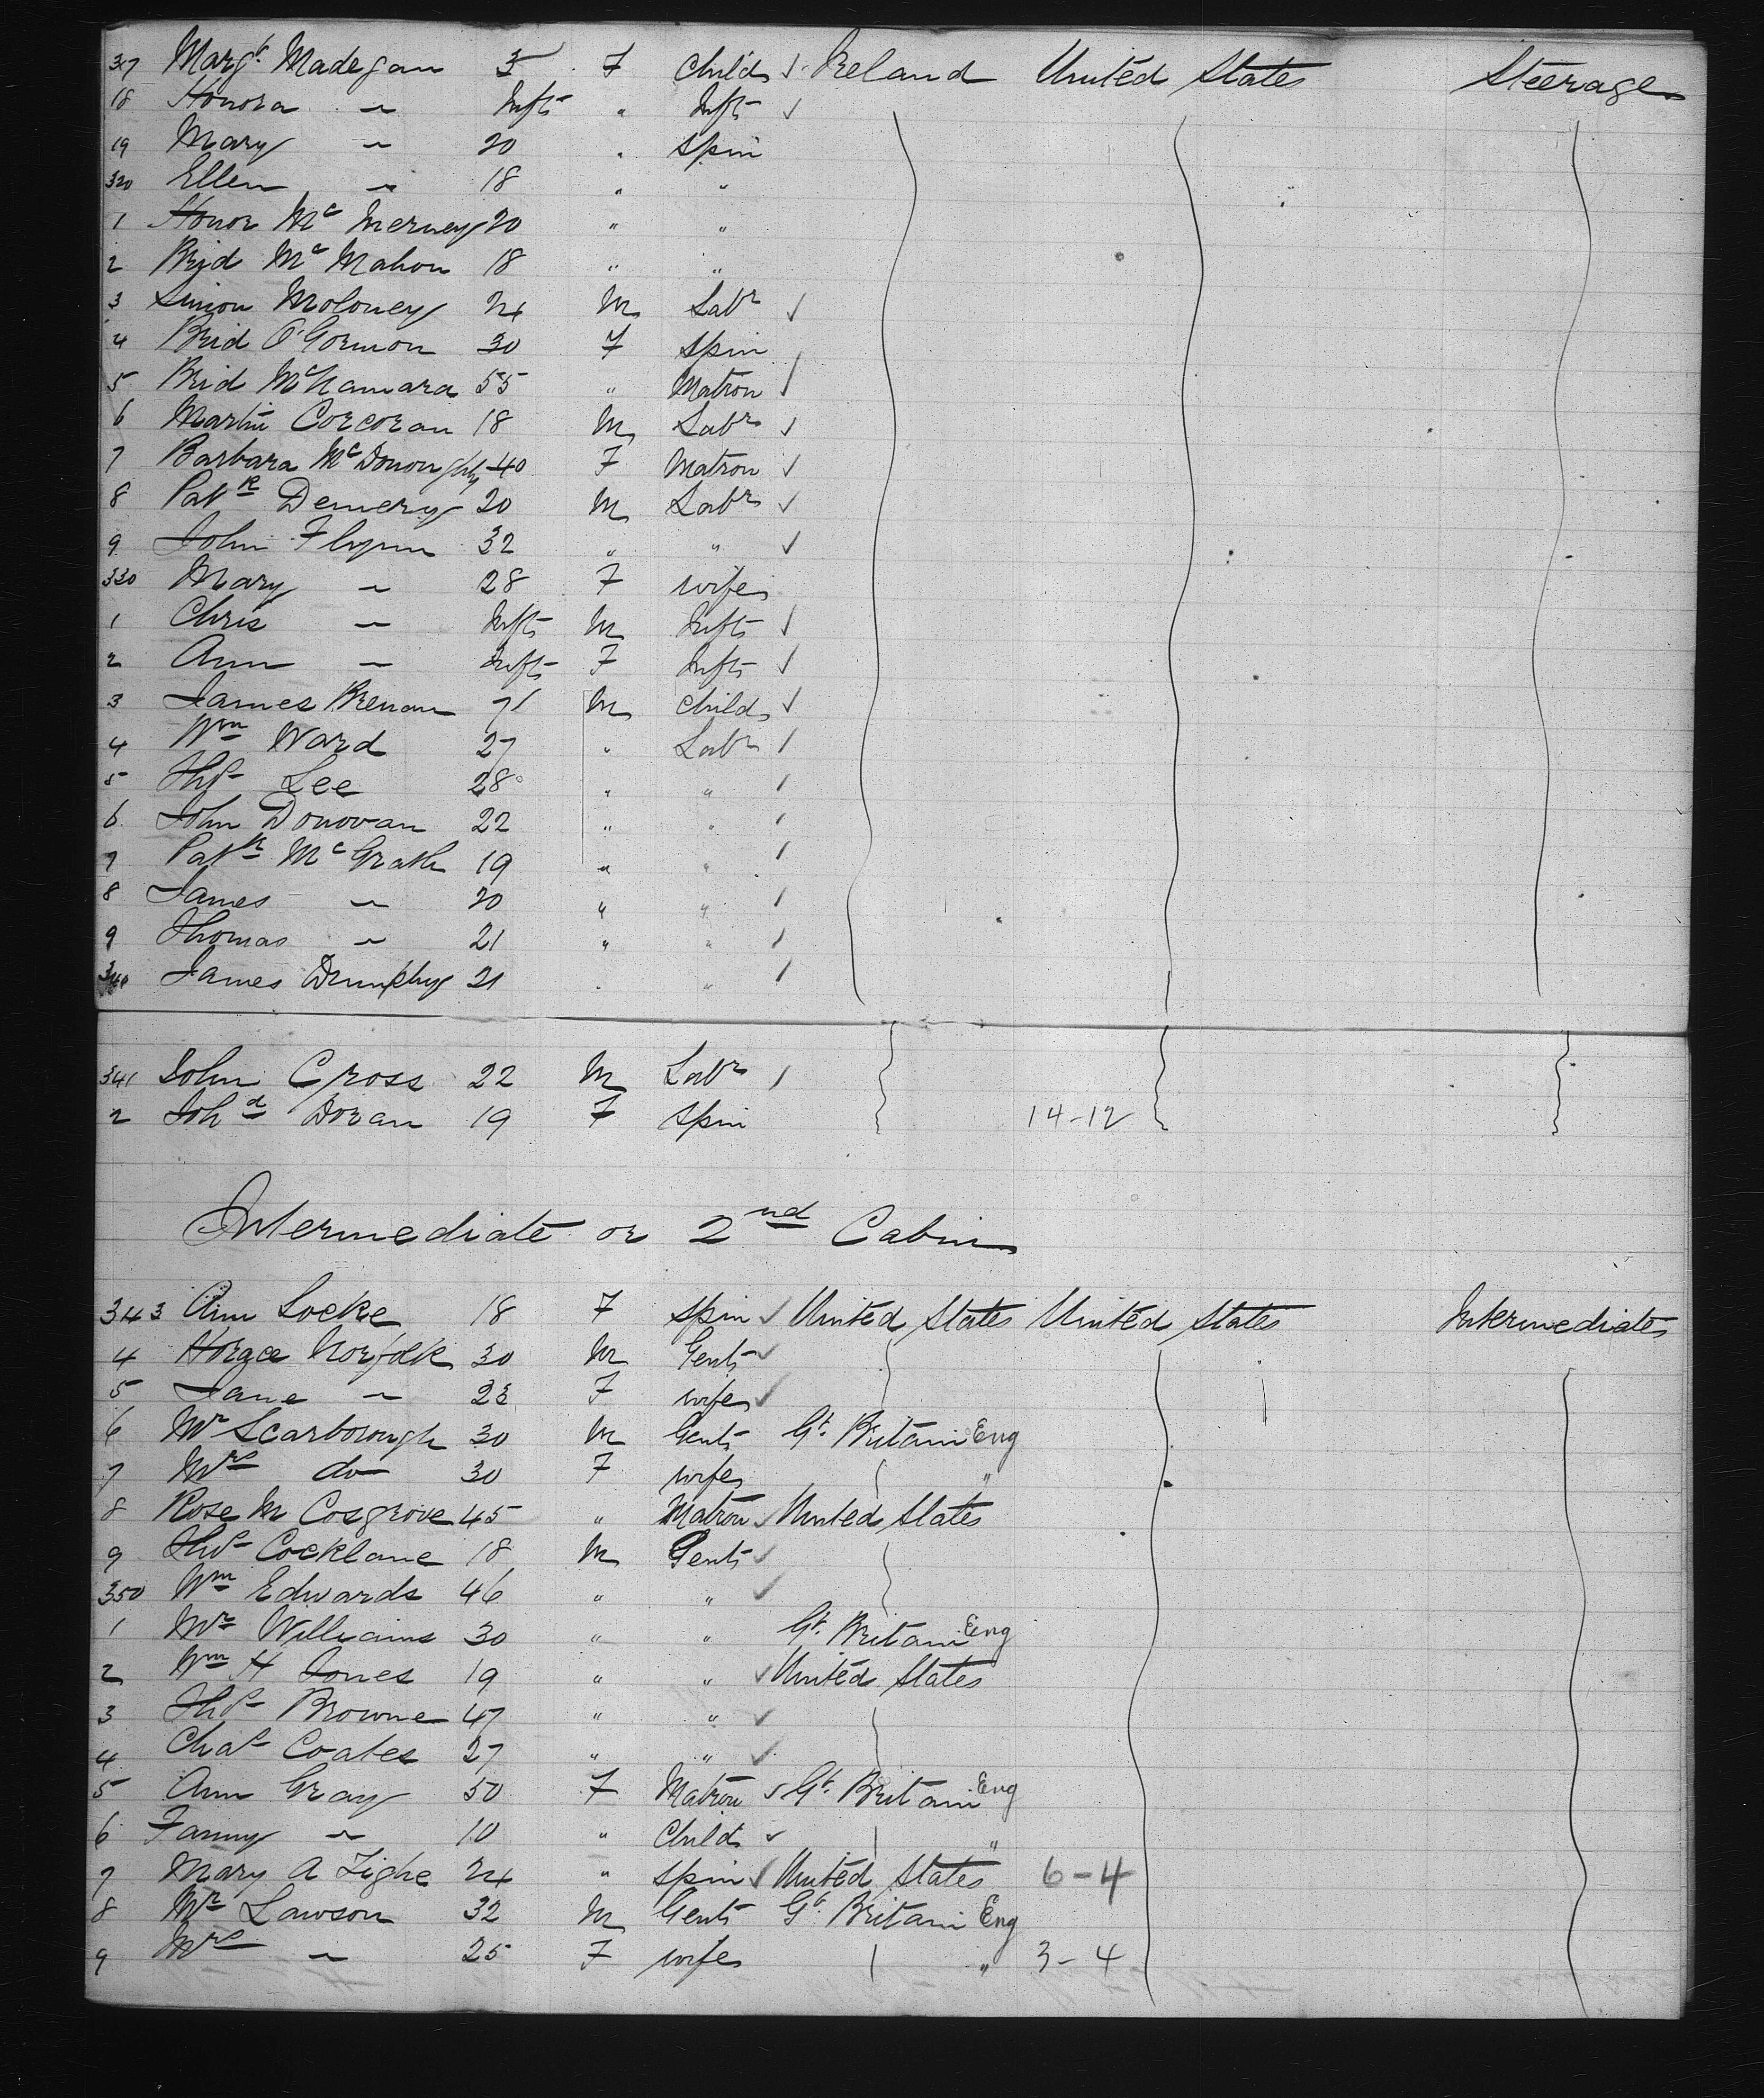 317 Margt Madegan 5 F Child Ireland United States Steerage
18 Honora " Inft " Inft
19 Mary " 20 " Spin
320 Ellen " 18 " "
1 Honor McInerney 20 " "
2 Brid McMahon 18 " "
3 Simon Moloney 24 M Labr
4 Brid O'Gormon 30 F Spin
5 Brid McNamara 55 " Matron
6 Martin Corcoran 18 M Labr
7 Barbara McDonough 40 F Matron
8 Patk Demery 20 M Labr
9 John Flynn 32 " "
330 Mary " 28 F wife
1 Chris " Inft M Inft
2 Ann " Inft F Inft
3 James Brenan M Child
4 Wm Ward 27 " Labr
5 Thos Lee 28 " "
6 John Donovan 22 " "
7 Patk McGrath 19 " "
8 James " 20 " "
9 Thomas " 21 " "
340 James Dumphy 21 " "
341 John Cross 22 M Labr
2 Johd Doran 19 F Spin 14-12
Intermediate or 2nd Cabin
343 Ann Locke 18 F Spin United States United States Intermediate
4 Horace Norfolk 30 M Gent
5 Jane " 23 F wife
6 Mr Scarborough 30 M Gent Gt. Britain Eng
7 Mrs do 30 F wife "
8 Rose M Cosgrove 45 " Matron United States
9 Thos Cocklane 18 M Gent
350 Wm Edwards 46 " "
1 Mr Williams 30 " " Gt. Britain Eng
2 Wm H Jones 19 " " United States
3 Thos Browne 47 " "
4 Chas Coates 27 " "
5 Ann Gray 50 F Matron Gt. Britain Eng
6 Fanny " 10 " Child "
7 Mary A Tighe 24 " Spin United States 6-4
8 Mr Lawson 32 M Gent Gt. Britain Eng
9 Mrs " 25 F wife " 3-4